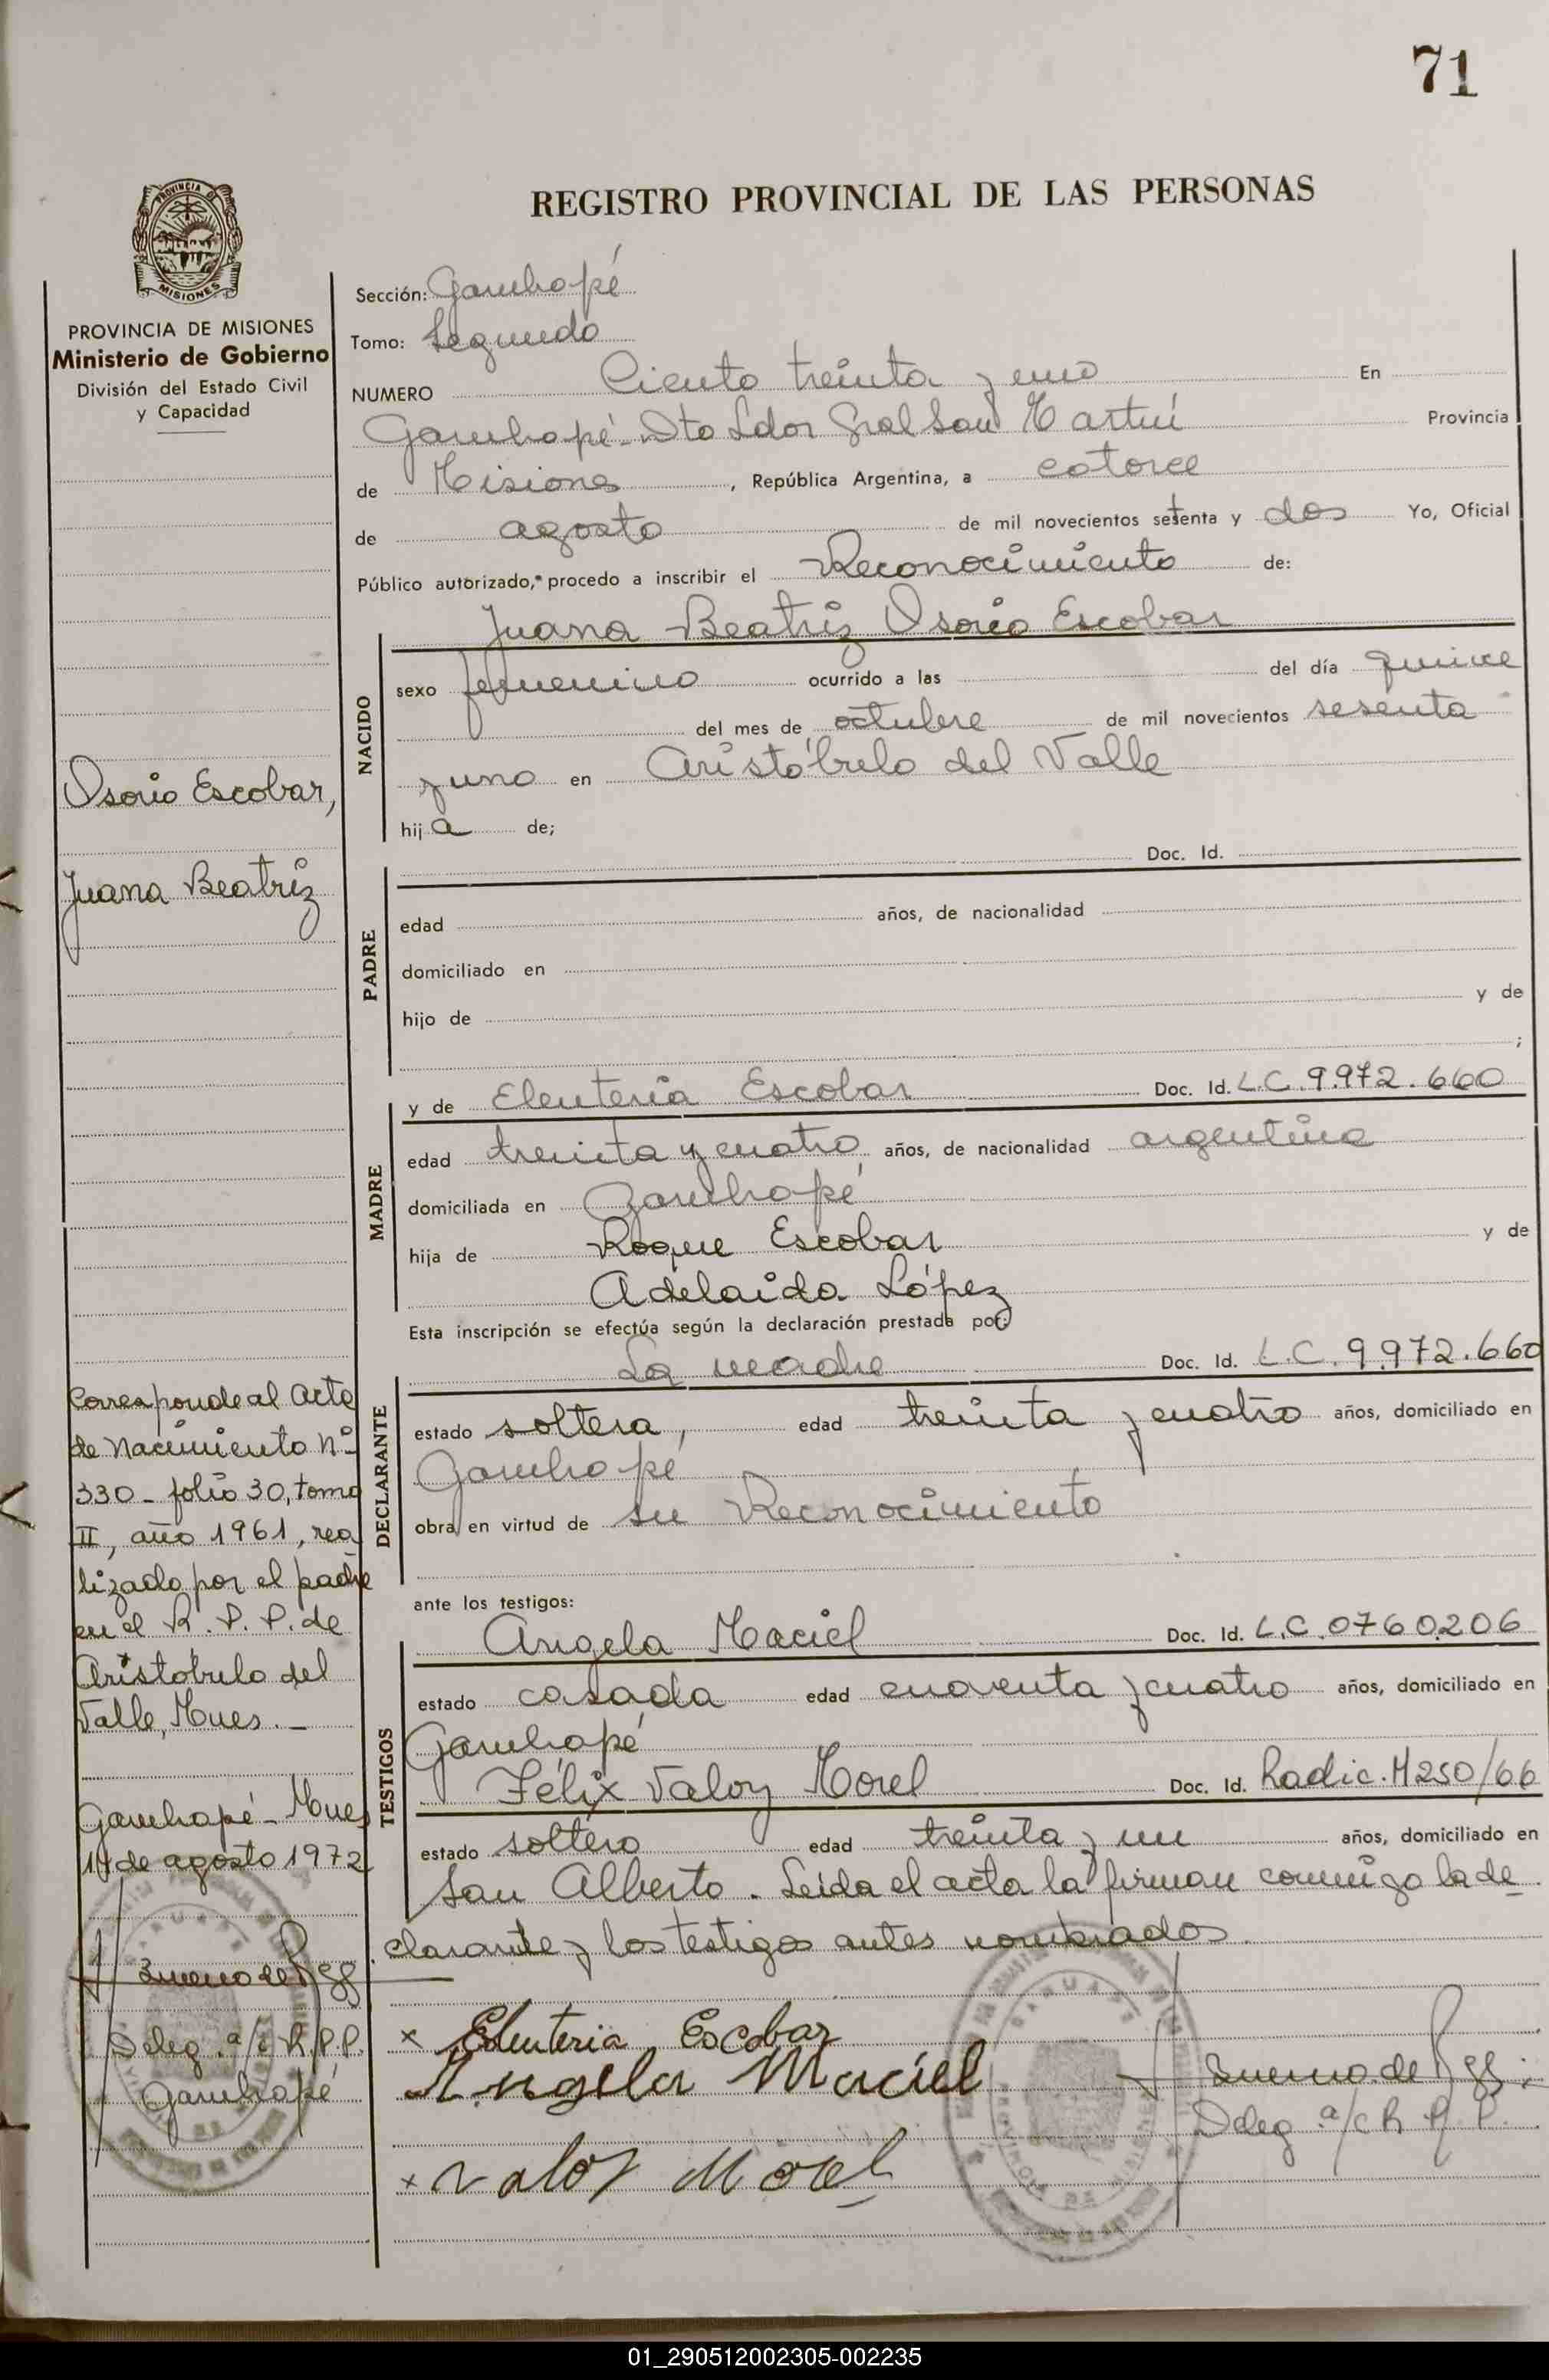 71
REGISTRO PROVINCIAL DE LAS PERSONAS
PROVINCIA DE MISIONES
Ministerio de Gobierno
División del Estado Civil
y Capacidad
Osorio Escobar,
Juana Beatriz
Corresponde al Acta
de Nacimiento Nº
330 - folio 30, tomo
II, año 1961, rea
lizado por el padre
en el R. P. P. de
Aristóbulo del
Valle, Mnes. -
Garuhapé - Mnes
14 de agosto 1972
Deleg. a/c R.P.P.
Garuhapé
Sección: Garuhapé
Tomo: Segundo
NUMERO Ciento treinta y uno En
Garuhapé - Dto Ldor Gral San Martín Provincia
de Misiones, República Argentina, a catorce
de agosto de mil novecientos setenta y dos Yo, Oficial
Público autorizado, procedo a inscribir el Reconocimiento de:
Juana Beatriz Osorio Escobar
NACIDO
sexo femenino ocurrido a las del día quince
del mes de octubre de mil novecientos sesenta
y uno en Aristóbulo del Valle
hija de;
Doc. Id.
PADRE
edad años, de nacionalidad
domiciliado en
hijo de y de
;
MADRE
y de Eleuteria Escobar Doc. Id. L.C. 9.972.660
edad treinta y cuatro años, de nacionalidad argentina
domiciliada en Garuhapé
hija de Roque Escobar y de
Adelaida López
Esta inscripción se efectúa según la declaración prestada por:
La madre Doc. Id. L.C. 9.972.660
DECLARANTE
estado soltera, edad treinta y cuatro años, domiciliado en
Garuhapé
obra en virtud de su Reconocimiento
ante los testigos:
Angela Maciel Doc. Id. L.C. 0760206
TESTIGOS
estado casada edad cuarenta y cuatro años, domiciliado en
Garuhapé
Félix Valoy Morel Doc. Id. Radic. M250/66
estado soltero edad treinta y un años, domiciliado en
San Alberto. Leida el acta la firman conmigo la de
clarante y los testigos antes nombrados.
x Eleuteria Escobar
Angela Maciel
Deleg a/c R. P. P.
x Valoy Morel
01_290512002305-002235